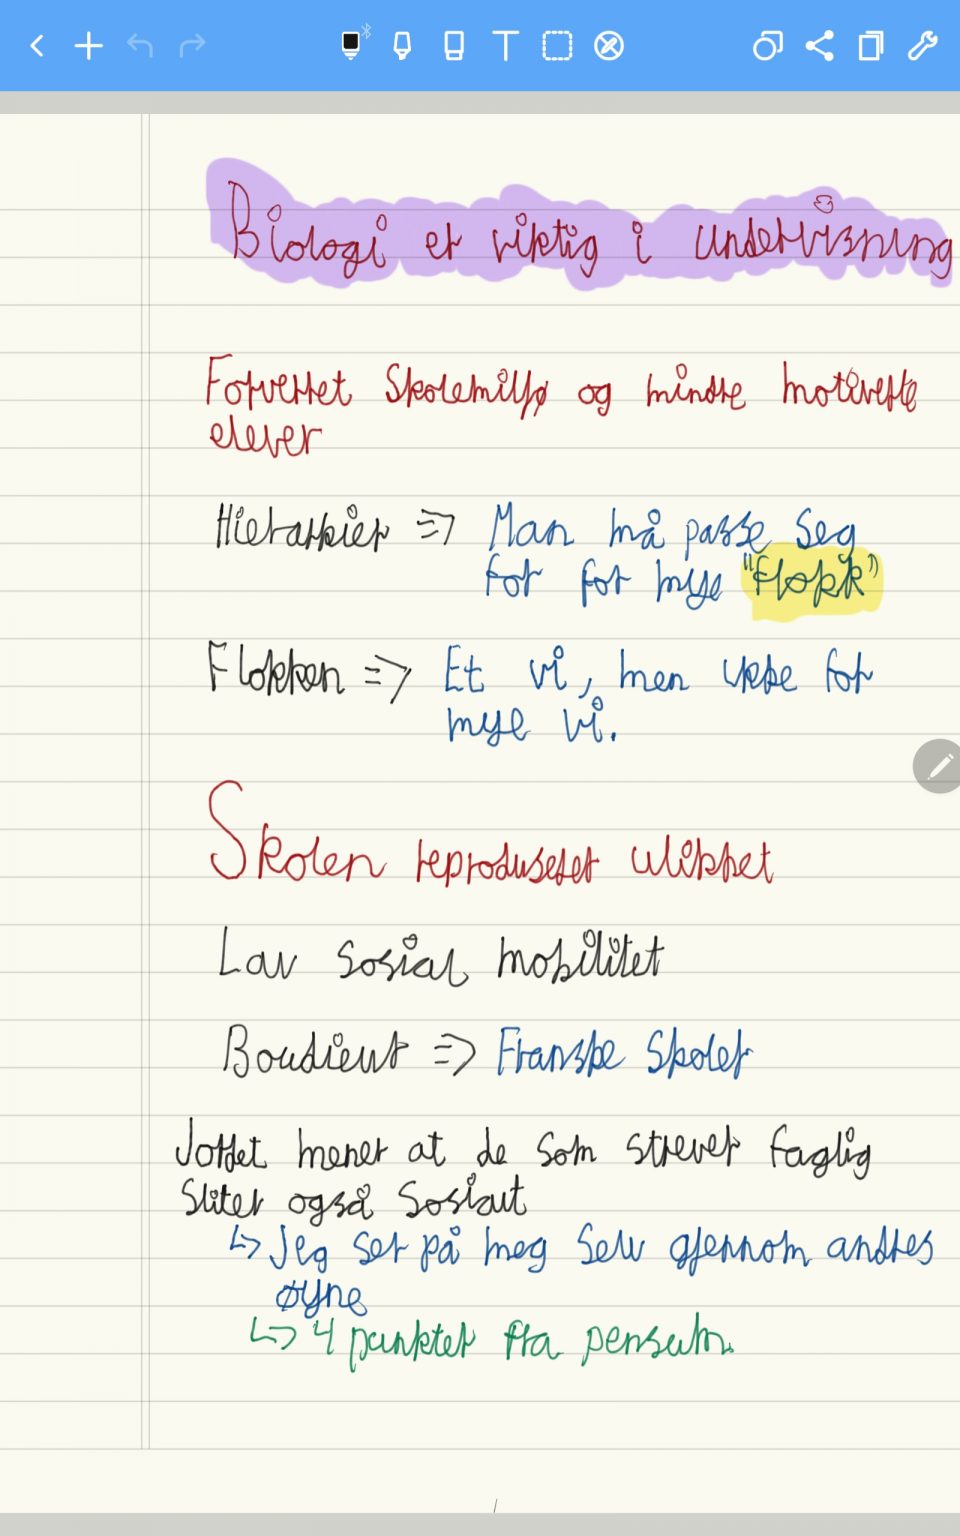 Biologi er viktig i undervisning
Forverret Skolemiljø og mindre motiverte
elever
Hierarkier => Man må passe seg
for for mye "flokk"
Flokken => Et vi, men ikke for
mye vi.
Skolen reproduserer ulikhet
Lav sosial mobilitet
Boudieut => Franske Skoler
mener at de som strever faglig
Sliter også Sosialt
↳ Jeg ser på meg selv gjennom andres
øyne
↳ 4 punkter fra pensum.